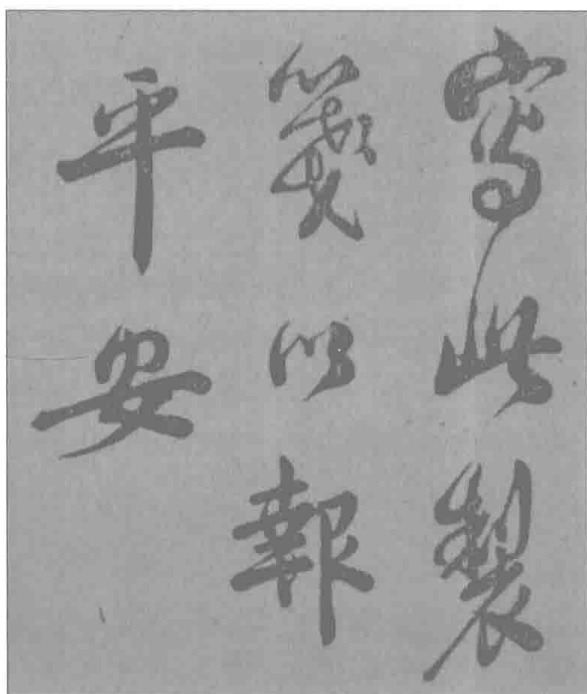 寫此製
箋以報
平安